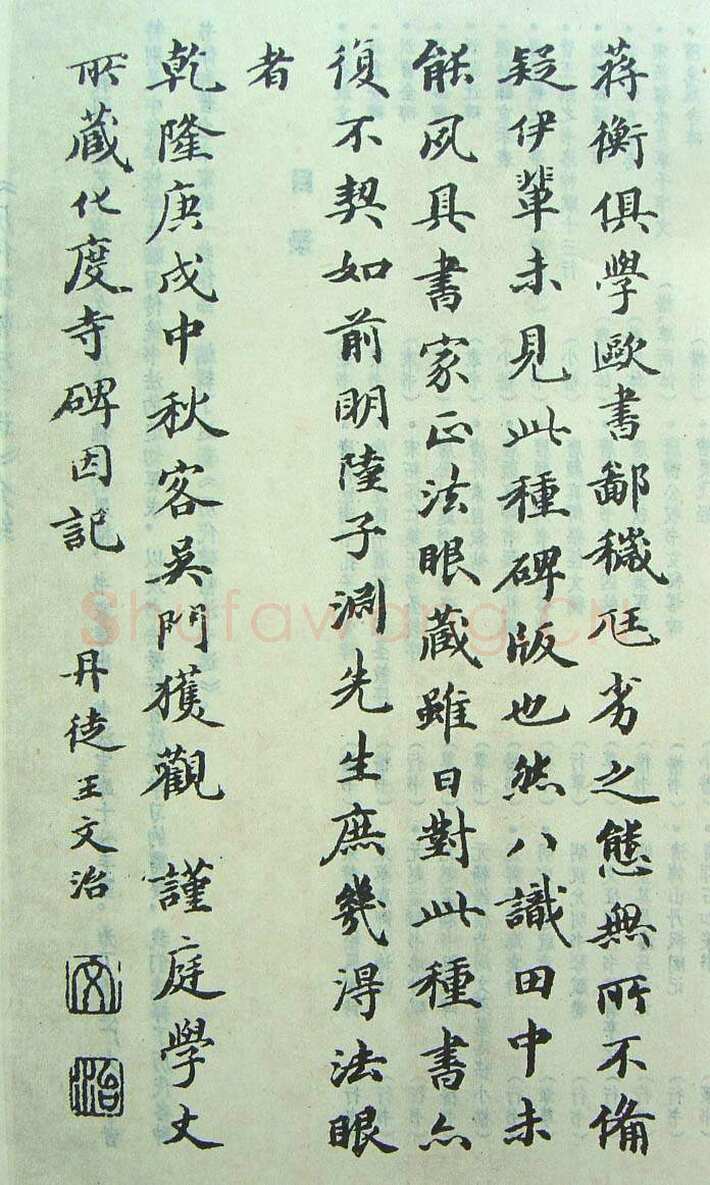 蔣衡俱學歐書鄙穢尫劣之態無所不備
疑伊輩未見此種碑版也然八識田中未
能夙具書家正法眼藏雖日對此種書亦
復不契如前明陸子淵先生庶幾得法眼
者
乾隆庚戌中秋客吳門獲觀 謹庭學丈
所藏化度寺碑因記 丹徒王文治
文
治
Shufawang.cn